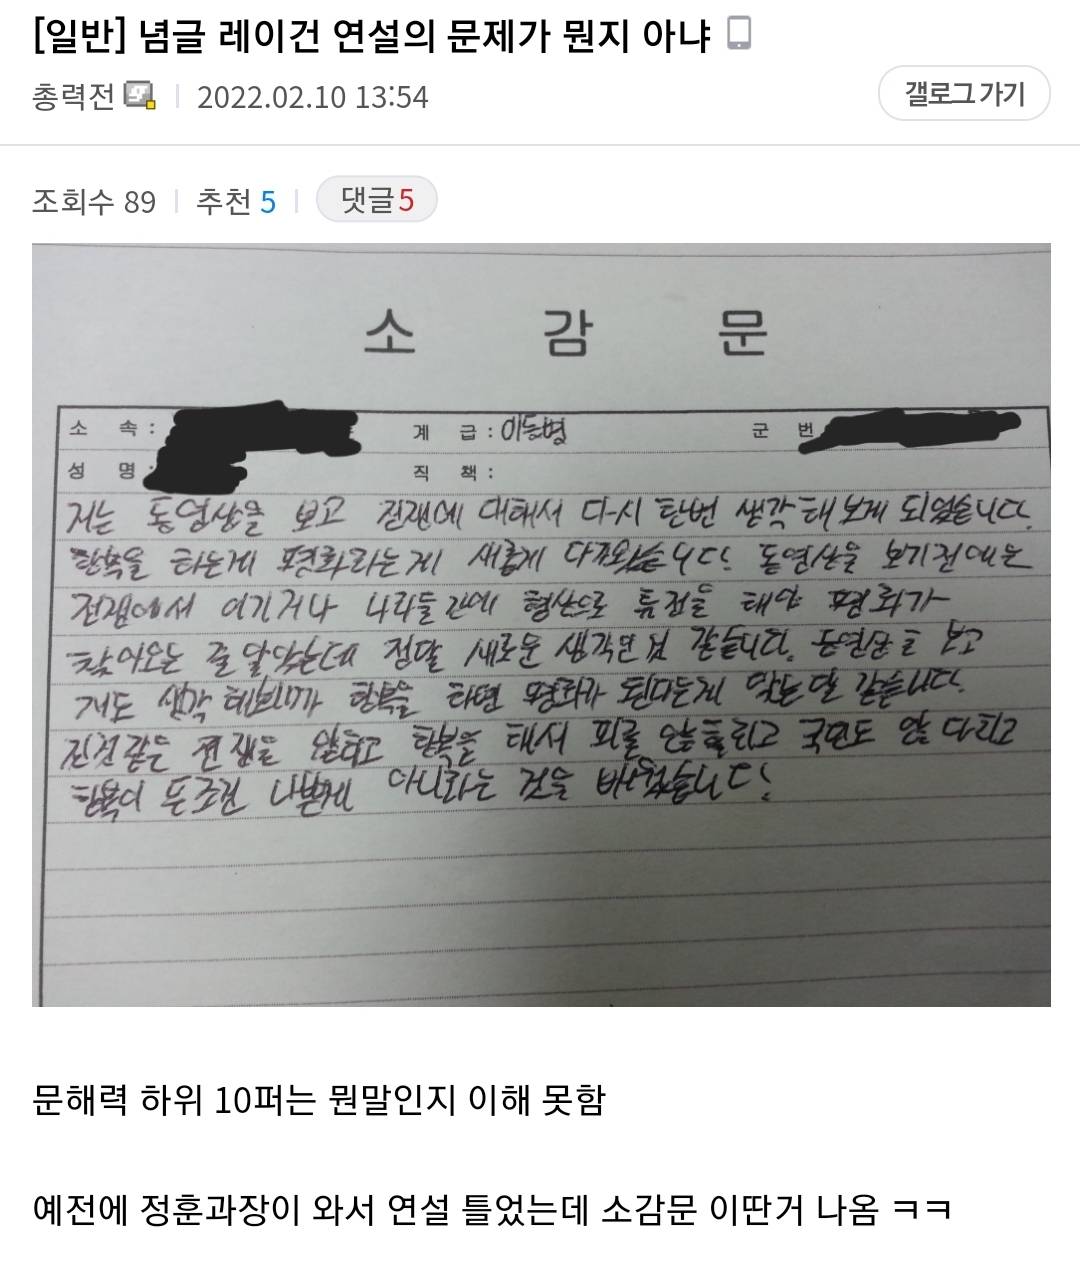 [일반] 념글 레이건 연설의 문제가 뭔지 아냐
총력전 2022.02.10 13:54
갤로그 가기
조회수 89 추천 5 댓글 5
소 감 문
소 속 : 계 급 : 이등병 군 번
성 명 : 직 책 :
저는 동영상을 보고 전쟁에 대해서 다시 한번 생각해보게 되었습니다.
항복을 하는게 평화라는게 새롭게 다가왔습니다. 동영상을 보기전에는
전쟁에서 이기거나 나라들간에 협상으로 휴전을 해야 평화가
찾아오는 줄 알았는데 정말 새로운 생각인 것 같습니다. 동영상을 보고
저도 생각 해보니까 항복을 하면 평화가 된다는게 맞는 말 같습니다.
진것같은 전쟁을 안하고 항복을 해서 피를 안흘리고 국민도 안 다치고
항복이 무조건 나쁜게 아니라는 것을 배웠습니다.
문해력 하위 10퍼는 뭔말인지 이해 못함
예전에 정훈과장이 와서 연설 틀었는데 소감문 이딴거 나옴 ㅋㅋ